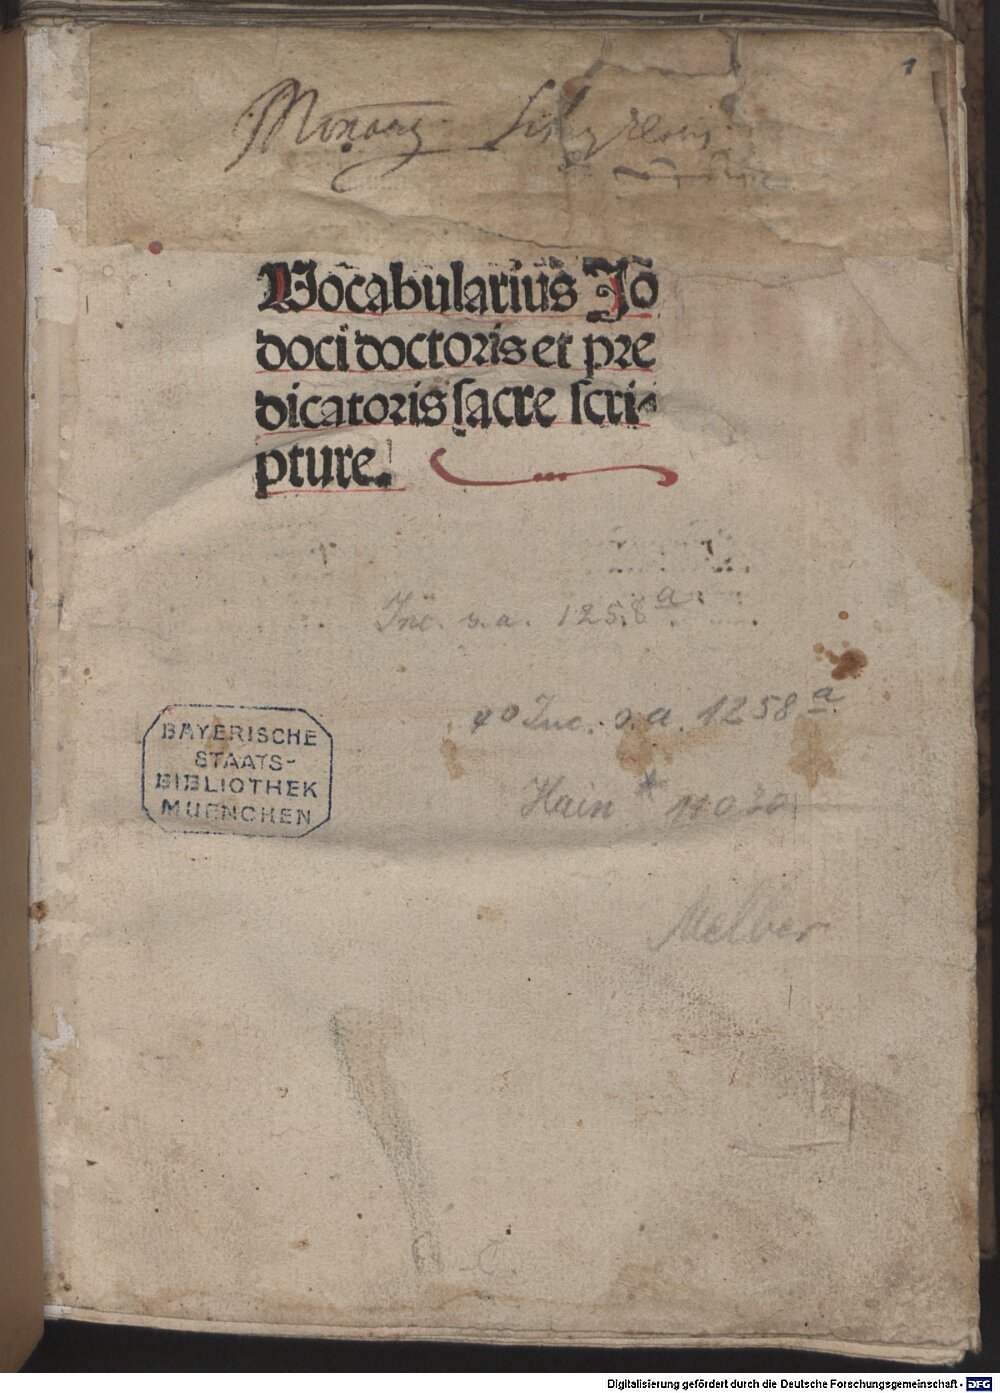 1
Vocabularius Jo
doci doctoris et pre
dicatoris sacre scri⸗
pture.
Inc. s. a. 1258 a
4° Inc. s. a. 1258 a
BAYERISCHE
STAATS-
BIBLIOTHEK
MUENCHEN
Hain *
Melber
Digitalisierung gefördert durch die Deutsche Forschungsgemeinschaft - DFG